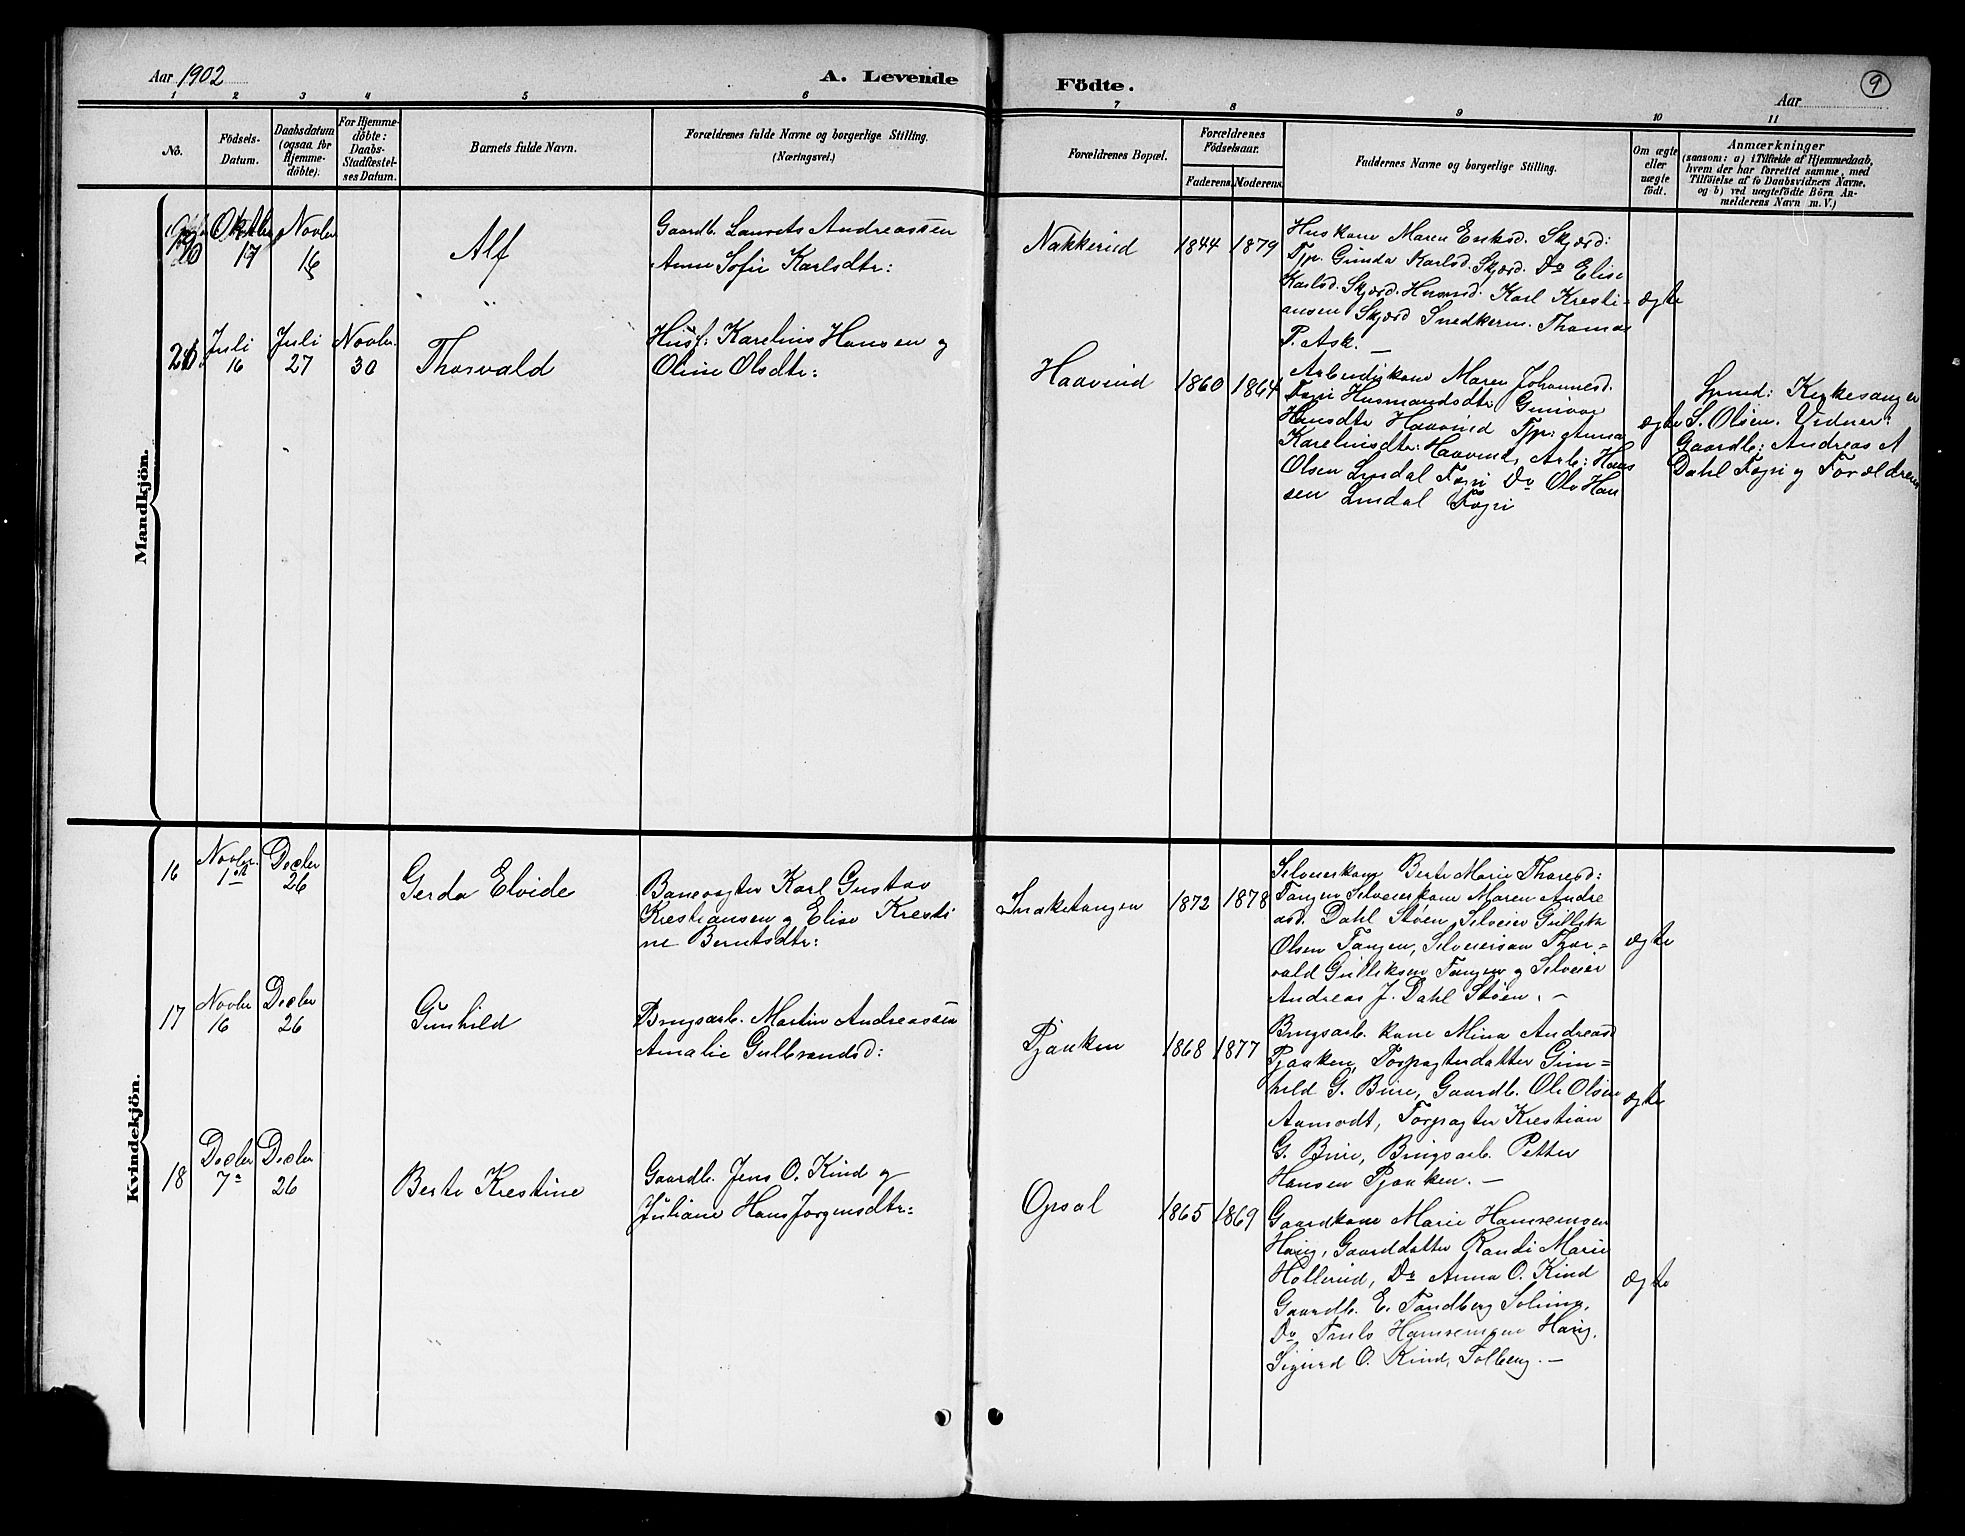 Aar 1902
A. Levende
Födte.
9
Aar
1 2 3 4 5 6 7 8 9 10 11
No.
Födsels-
Datum.
Daabsdatum
(ogsaa for
Hjemme-
döbte).
For Hjemme-
döbte:
Daabs-
Stadfæstel-
ses Datum.
Barnets fulde Navn.
Forældrenes fulde Navne og borgerlige Stilling.
(Næringsvei.)
Forældrenes Bopæl.
Forældrenes
Födselsaar.
Faderens. Moderens.
Faddernes Navne og borgerlige Stilling.
Om ægte
eller
uægte
födt.
Anmærkninger
(saasom: a) i Tilfælde af Hjemmedaab,
hvem der har forrettet samme, med
Tilföielse af to Daabsvidners Navne,
og b) ved uægtefödte Börn An-
melderens Navn m. V.)
Mandkjön.
20
Oktbr
17
Novbr
16
Alf
Gaardb. Laurits Andreassen
Anne Sofie Karlsdtr:
Nakkerud
1844
1879
Huskone Maren Eriksd. Skjærd:
Tjp. Gunda Karlsd. Skjærd. Do Elise
Karlsd. Skjærd. Husmd. Karl Kresti-
ansen Skjærd Snedkerm. Thomas
P. Ask. —
ægte
21
Juli
16
Juli
27
Novbr.
30
Thorvald
Husf: Karelius Hansen og
Oline Olsdtr:
Haavind
1860
1864
Arbeidskone Maren Johannesd.
Husmandsdtr: Gunvor
Hansdtr Haavind Tjp: Anna
Kareliusdtr: Haavind, Arb: Hans
Olsen Lindal Do Ole Han
sen Lindal
ægte
Kirkesanger
S. Olsen. Vidner:
Gaardb: Andreas A
Dahl og Forældrene
Kvindekjön.
16
Novbr.
1ste
Decbr
26
Gerda Elvide
Banevogter Karl Gustav
Kristiansen og Elise Kresti
ne Berntsdtr:
Snaketangen
1872
1878
Selveierkone Berte Marie Thoresd:
Tangen Selveierkone Maren Andre
asd. Dahl Støen, Selveier Gullik
Olsen Tangen, Selveiersøn Thor-
vald Gulliksen Tangen og Selveier
Andreas J. Dahl Støen. —
ægte
17
Novbr
16
Decbr
26
Gunhild
Brugsarb. Martin Andreassen
Amalie Gulbrandsd:
Pjaaken
1868
1877
Brugsarb. kone Mina Andreasd
Pjaaken, Forpagterdatter Gun-
hild G. Bure, Gaardb. Ole Olsen
Aamodt, Forpagter Krestian
G. Bure, Brugsarb. Petter
Hansen Pjaaken. —
ægte
18
Decbr
7de
Decbr
26
Berte Krestine
Gaardb. Jens O. Kind og
Juliane Hans Jørgensdtr:
Opsal
1865
1869
Gaardkone Marie Hansemoen
Haug, Gaarddatter Randi Marie
Hollerud, Do Anna O. Kind
Gaardb. E. Tandberg Solum,
Do Truls Haug,
Sigurd O. Kind, Solberg. —
ægte